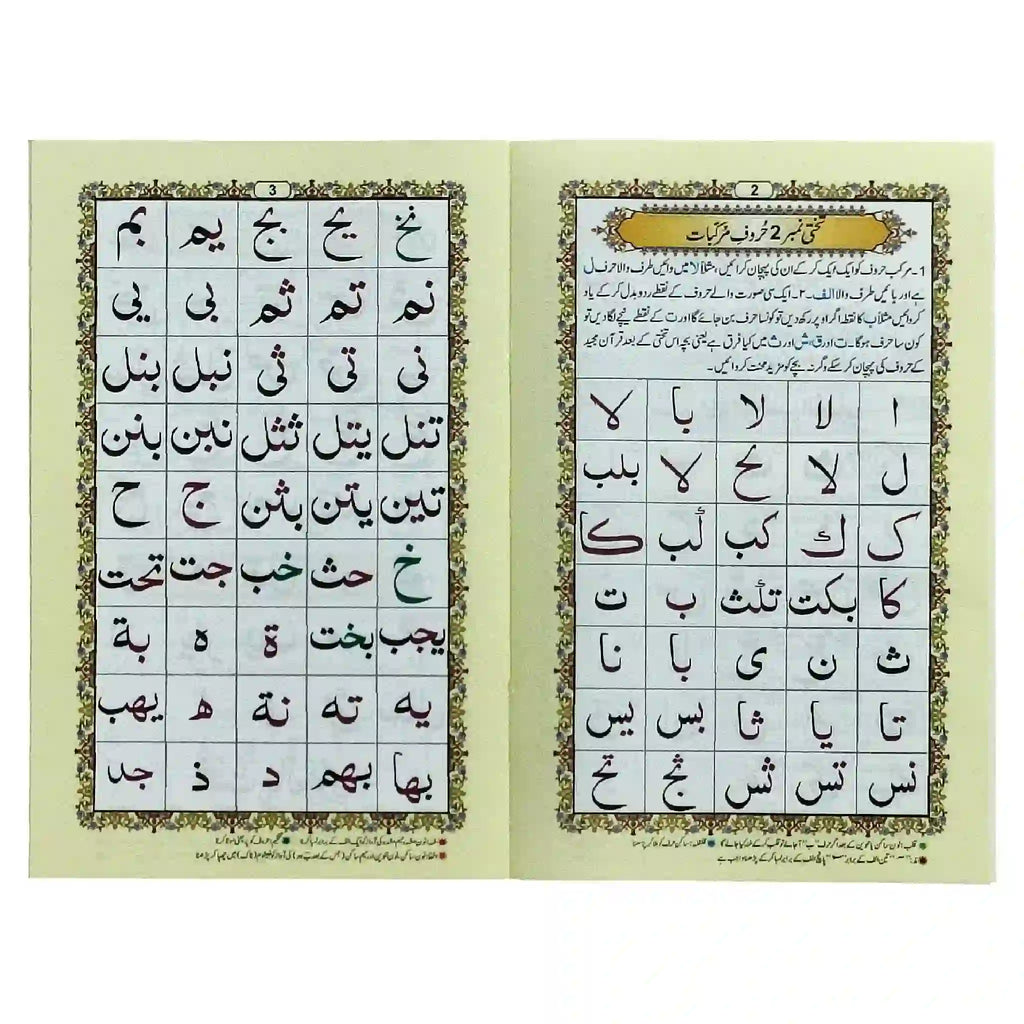 2
تختی نمبر 2 حُروفِ مُرکّبات
1۔ مرکب حروف کو ایک ایک کر کے ان کی پہچان کرائیں، مثلاً لا میں دائیں طرف والا حرف ل
ہے اور بائیں طرف والا الف۔ ۲۔ ایک سی صورت والے حروف کے نقطے ردوبدل کر کے یاد
کروائیں مثلاً ب کا نقطہ اگر اوپر رکھ دیں تو کونسا حرف بن جائے گا اور ت کے نقطے نیچے لگا دیں تو
کون سا حرف ہوگا۔ ت اور ق، ش اور ث میں کیا فرق ہے یعنی بچہ اس تختی کے بعد قرآن مجید
کے حروف کی پہچان کر سکے وگرنہ بچے کو مزید محنت کروائیں۔
ا لا لا با لا
ل لا لح لا بلب
ک ك كب لب كا
كا بكت تلث ب ت
ث ن ى با نا
تا يا ثا بس يس
نس تس ثس ثج تح
3
نخ يح بج يم بم
نم تم ثم بى يى
نى تى ثى نبل بنل
تنل يتل ثثل نبن بنن
تين يتن بثن ج ح
خ حث خب جت تحت
يجب بخت ة ه بة
يه ته نة ه يهب
بها بهم د ذ جد